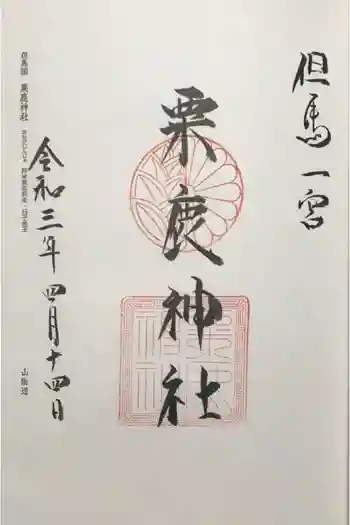 但馬一宮
粟鹿神社
令和三年四月十四日
但馬國 粟鹿神社
山陰道